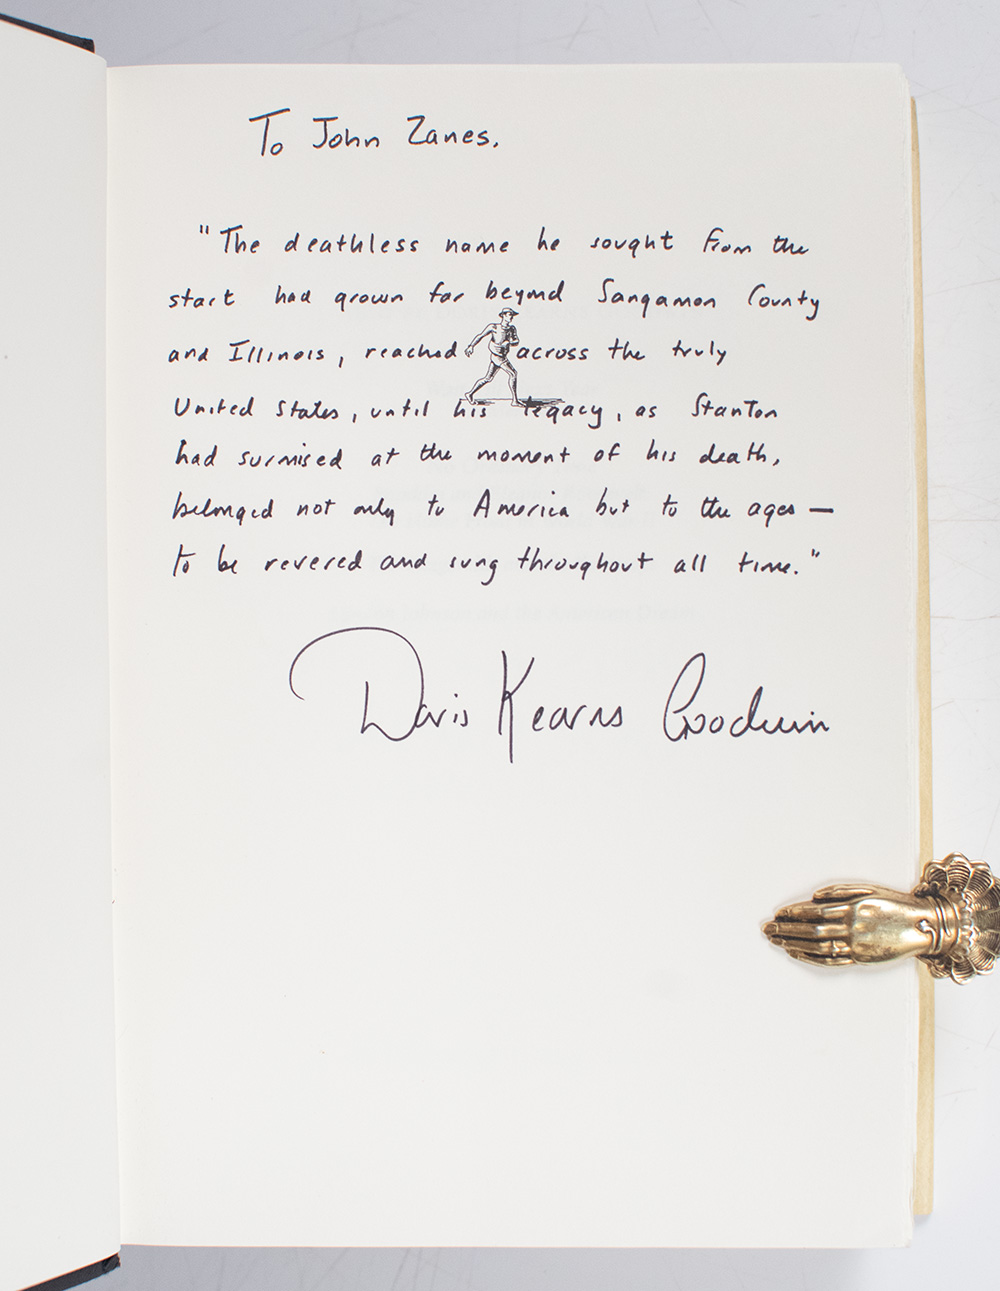 To John Zanes,
"The deathless name he sought from the
start had grown far beyond Sangamon County
and Illinois, reached across the truly
United States, until his legacy, as Stanton
had surmised at the moment of his death,
belonged not only to America but to the ages —
to be revered and sung throughout all time."
Doris Kearns Goodwin